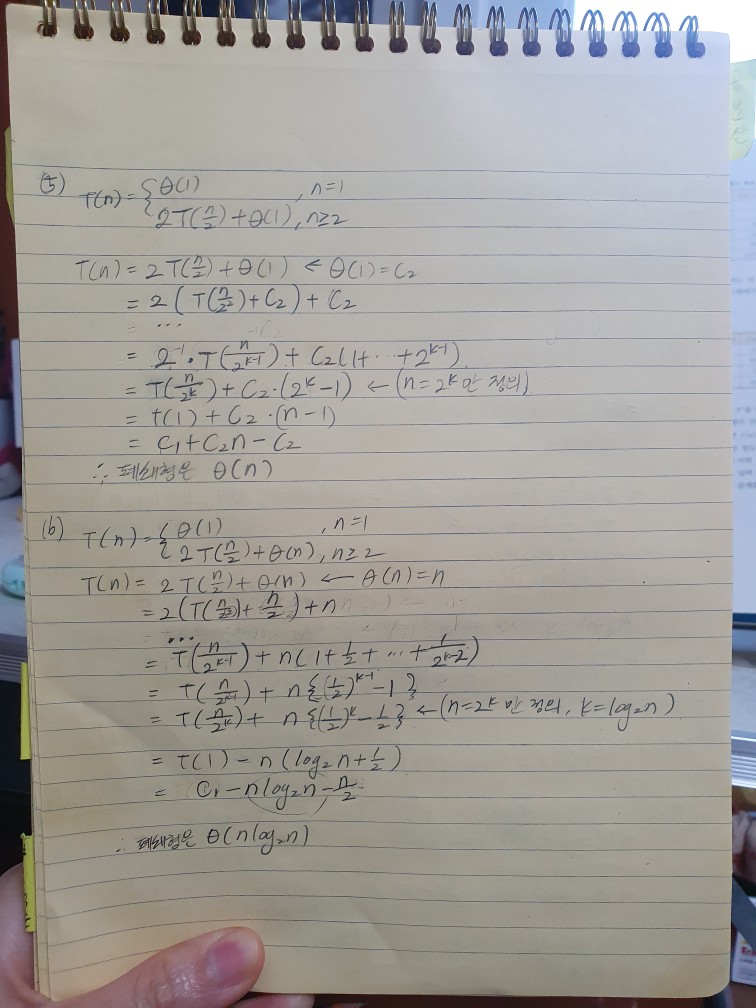 (5) T(n) = { θ(1) , n=1
2T(n/2) + θ(1), n≥2
T(n) = 2T(n/2) + θ(1) ← θ(1) = C₂
= 2(T(n/2²) + C₂) + C₂
= ...
= 2⁻¹ · T(n/2^(k-1)) + C₂(1+ ··· +2^(k-1))
= T(n/2^k) + C₂·(2^k - 1) ← (n=2^k 만 정의)
= t(1) + C₂·(n-1)
= C₁ + C₂n - C₂
∴ 폐쇄형은 θ(n)
(6) T(n) = { θ(1) , n=1
2T(n/2) + θ(n), n≥2
T(n) = 2T(n/2) + θ(n) ← θ(n) = n
= 2(T(n/2²) + n/2) + n
...
= T(n/2^(k-1)) + n(1 + 1/2 + ... + 1/2^(k-2))
= T(n/2^(k-1)) + n{(1/2)^(k-1) - 1}
= T(n/2^k) + n{(1/2)^k - 1/2} ← (n=2^k 만 정의, k=log₂n)
= T(1) - n(log₂n + 1/2)
= C₁ - nlog₂n - n/2
∴ 폐쇄형은 θ(nlog₂n)